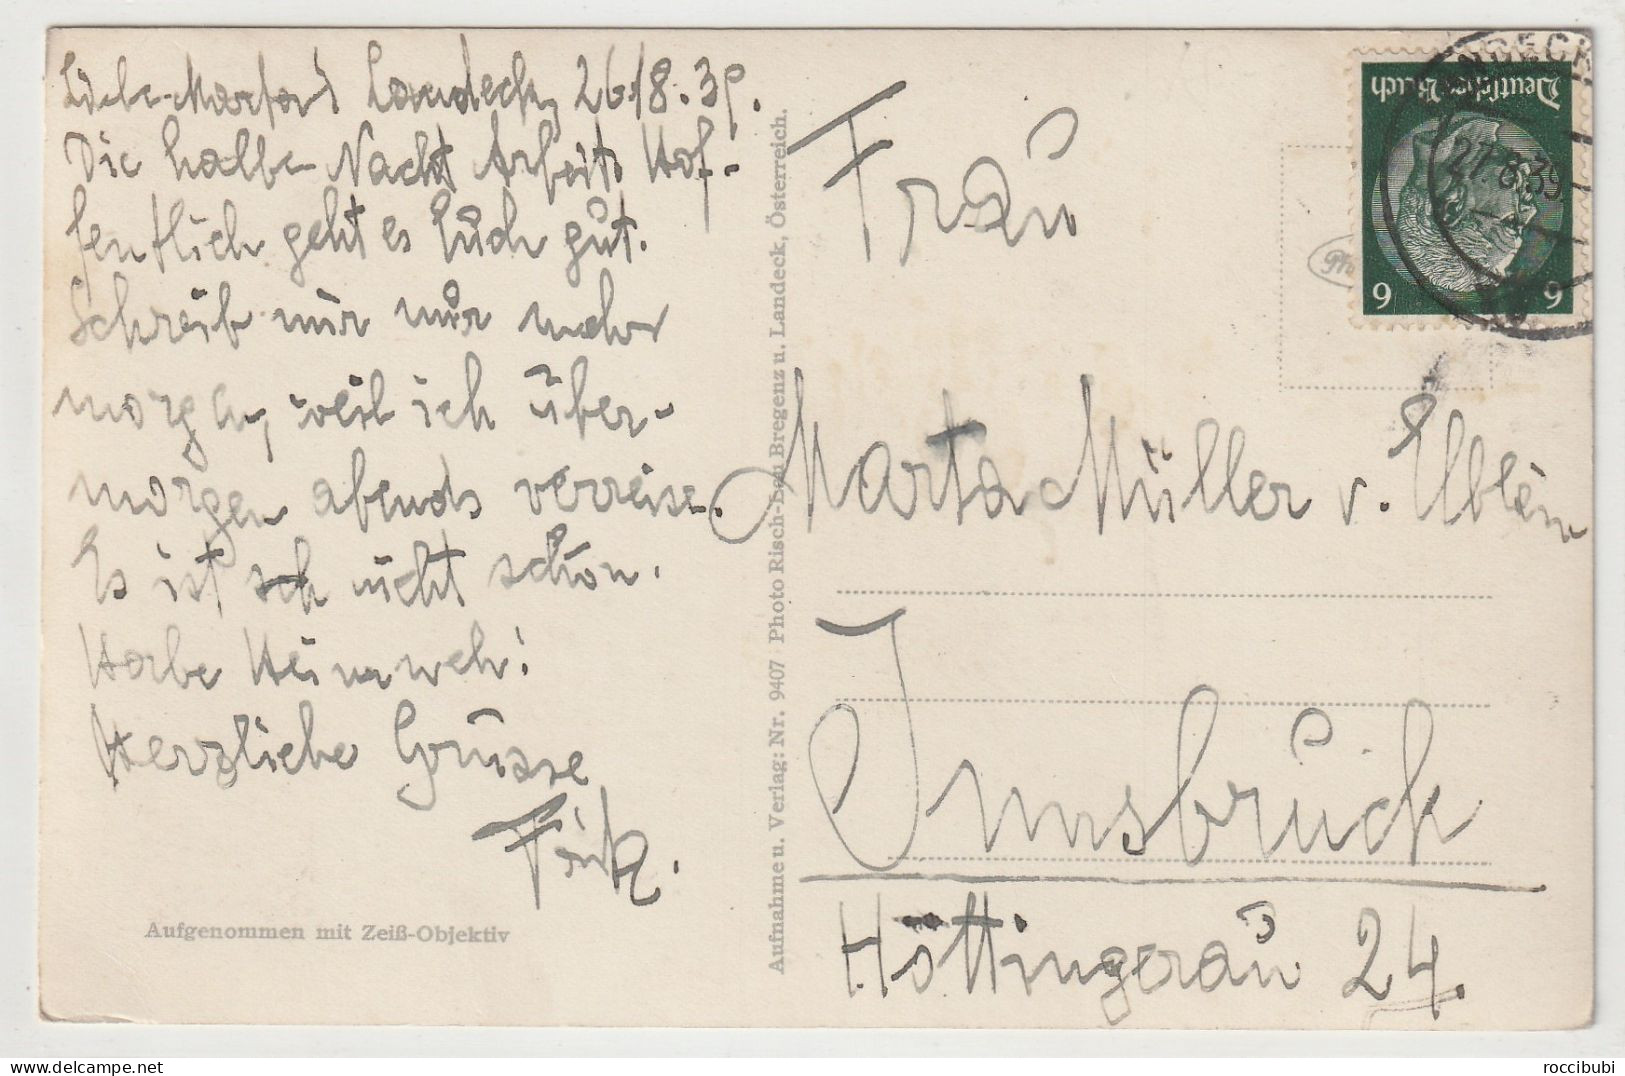 Liebe Marta! Landeck, 26.8.39.
Die halbe Nacht Arbeit. Hof-
fentlich geht es Euch gut.
Schreib mir nur mehr
morgen, weil ich über-
morgen abends verreise.
Es ist sch nicht schön.
Habe Heimweh!
Herzliche Grüsse
Fritz.
Aufgenommen mit Zeiß-Objektiv
Aufnahme u. Verlag: Nr. 9407 · Photo Risch-Lau Bregenz u. Landeck, Österreich.
Frau
Marta Müller v.
Innsbruck
Höttingerau 24.
Deutsches Reich
9 9
27.8.39
roccibubi